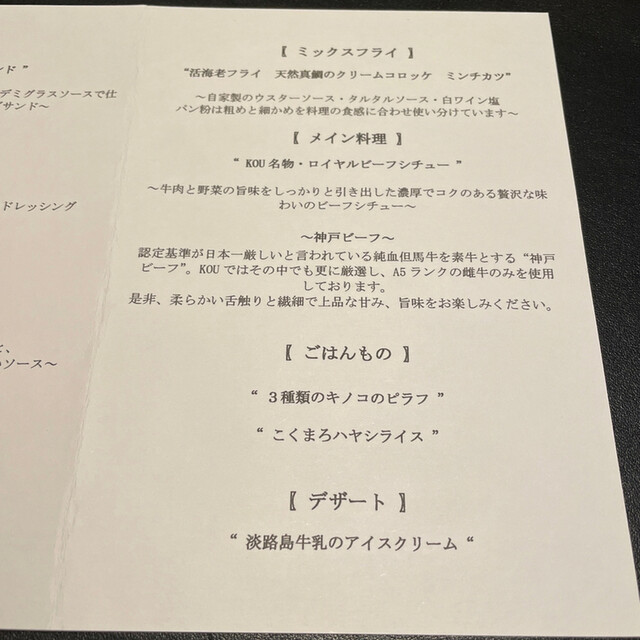 ンド ”
デミグラスソースで仕
サンド～
ドレッシング
ソース～
【 ミックスフライ 】
“活海老フライ 天然真鯛のクリームコロッケ ミンチカツ”
～自家製のウスターソース・タルタルソース・白ワイン塩
パン粉は粗めと細かめを料理の食感に合わせ使い分けています～
【 メイン料理 】
“ KOU名物・ロイヤルビーフシチュー ”
～牛肉と野菜の旨味をしっかりと引き出した濃厚でコクのある贅沢な味
わいのビーフシチュー～
～神戸ビーフ～
認定基準が日本一厳しいと言われている純血但馬牛を素牛とする“神戸
ビーフ”。KOUではその中でも更に厳選し、A5ランクの雌牛のみを使用
しております。
是非、柔らかい舌触りと繊細で上品な甘み、旨味をお楽しみください。
【 ごはんもの 】
“ ３種類のキノコのピラフ ”
“ こくまろハヤシライス ”
【 デザート 】
“ 淡路島牛乳のアイスクリーム “